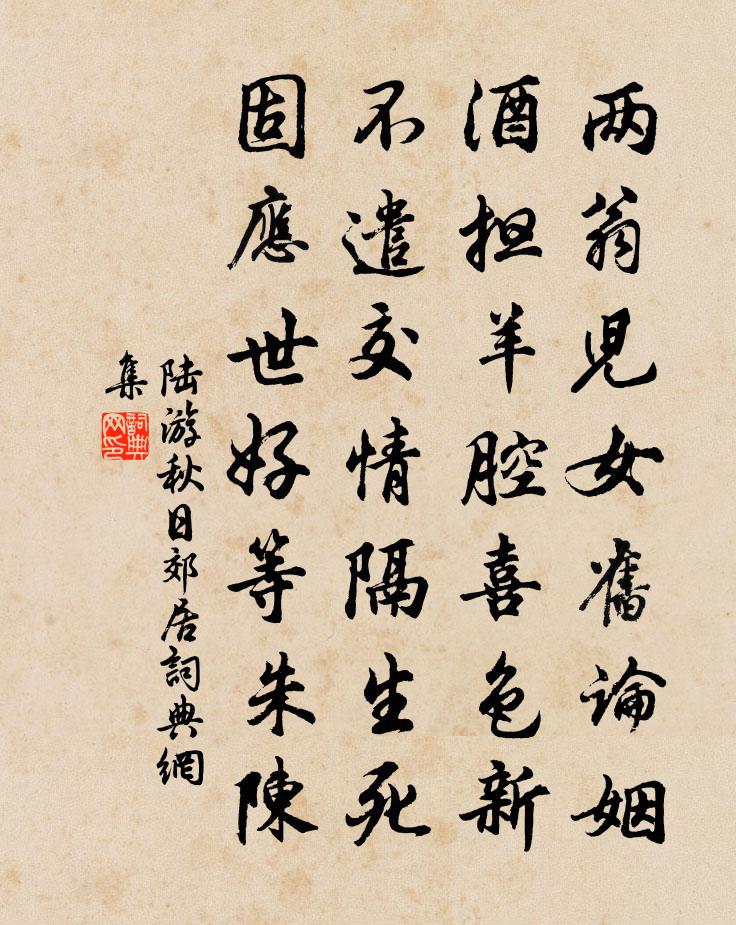 两翁児女舊論姻
酒担羊腔喜色新
不遣交情隔生死
固應世好等朱陳
陆游秋日郊居詞典網
集
詞典
网印